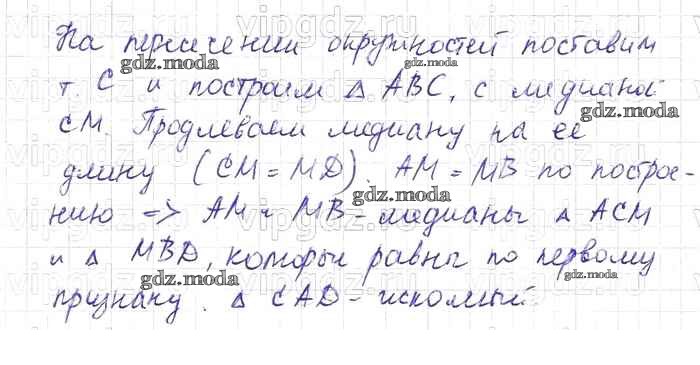 На пересечении окружностей поставим
т. C и построим △ ABC, с медианой
CM. Продлеваем медиану на ее
длину (CM = MD). AM = MB по построе-
нию => AM и MB - медианы △ ACM
и △ MBD, которые равны по первому
признаку. △ CAD - искомый.
vipgdz.ru
gdz.moda